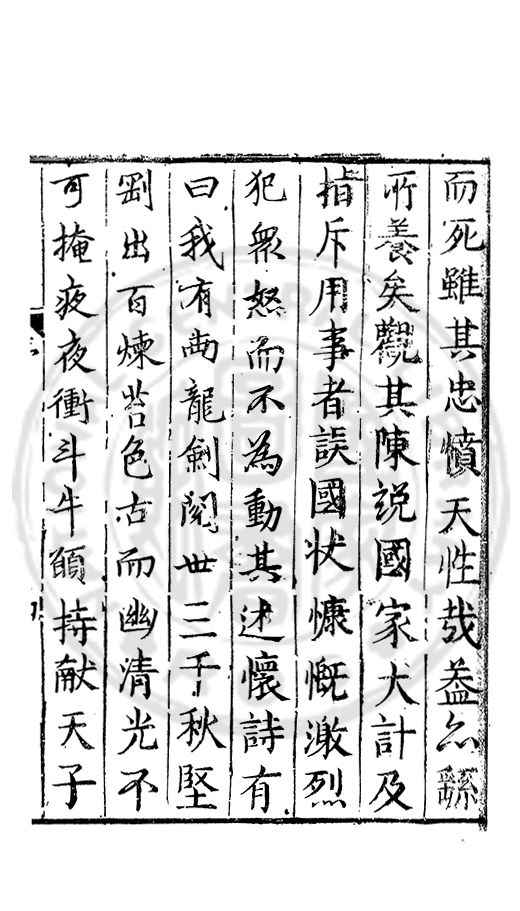 而死雖其忠憤天性哉葢亦繇
所養矣觀其陳說國家大計及
指斥用事者誤國状慷慨激烈
犯衆怒而不為動其述懷詩有
曰我有兩龍劍閱世三千秋堅
剛出百煉苔色古而幽清光不
可掩夜夜衝斗牛願持献天子